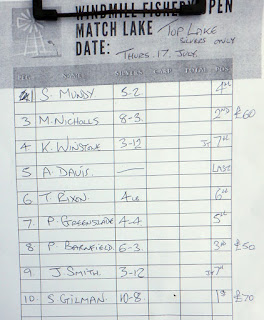 WINDMILL FISHERY OPEN
MATCH LAKE TOP LAKE
SILVERS ONLY
DATE: THURS. 17. JULY
PEG NAME SILVERS CARP TOTAL POS
S. MUNDY 5-2 4TH
3 M. NICHOLLS 8-3. 2ND £60
4 K. WINSTONE 3-12 JT 7TH
5 A. DAVIS. — LAST
6 T. RIXON. 4LB 6TH
7. P. GREENSLADE 4-4 5TH
8 P. BARNFIELD 6-3. 3RD £50
9 J SMITH. 3-12 JT 7TH
10. S GILMAN. 10-8. 1ST £70